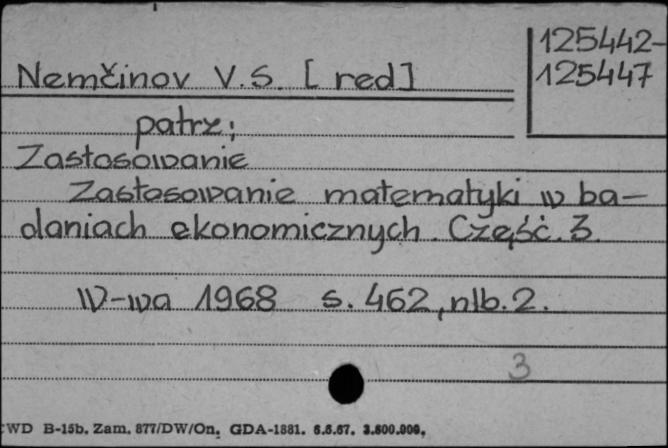 125442-
125447
Nemčinov V.S. [red]
patrz:
Zastosowanie
Zastosowanie matematyki w ba-
daniach ekonomicznych. Część. 3.
W-wa 1968 s. 462, nlb. 2.
3
CWD B-15b. Zam. 877/DW/On. GDA-1881. 6.6.67. 3.800.000.